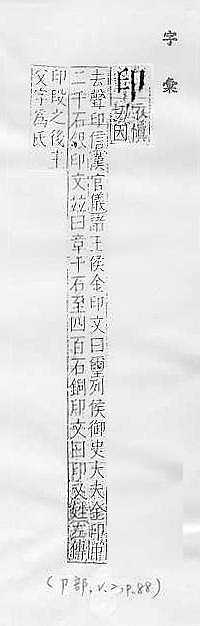 字彙
印
衣慎
切因
去聲印信漢官儀諸王侯金印文曰璽列侯御史大夫金印
二千石銀印文曰章千石至四百石銅印文曰印又姓左傳
印段之後半
父字為氏
(卩部, v.2, p.88)